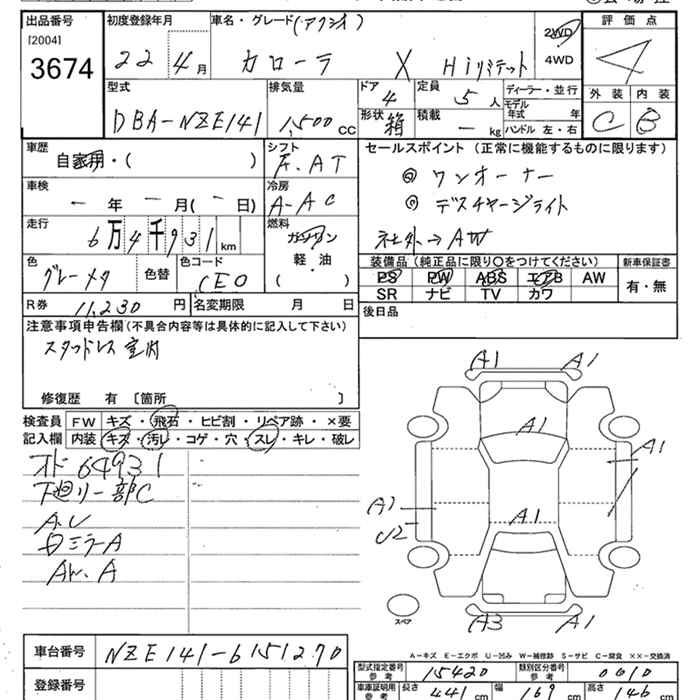 出品番号 初度登録年月 車名・グレード(アクシオ) 評価点
[2004] 3674 22 4月 カローラ X Hiリミテット 2WD 4WD 4
外装 内装
C B
型式 排気量 ドア 定員 ディーラー・並行
DBA-NZE141 1,500 CC 4 5 人 モデル年式 年
形状 箱 積載 - kg ハンドル 左・右
車歴 シフト セールスポイント(正常に機能するものに限ります)
自家用・( ) F.AT ◎ ワンオーナー
車検 冷房 ◎ デスチャージライト
- 年 - 月(- 日) A-AC 社外→AW
走行 燃料
6万4千931km ガソリン 軽・油 ( )
装備品(純正品に限り○をつけてください) 新車保証書
色 色替 色コード PS PW ABS エアB AW 有・無
グレーメタ CEO SR ナビ TV カワ
R券 11,230 円 名変期限 月 日 後日品
注意事項申告欄(不具合内容等は具体的に記入して下さい)
スタッドレス室内
修復歴 有 〔箇所 〕
検査員 FW キズ・飛石・ヒビ割・リペア跡・×要
記入欄 内装 キズ・汚レ・コゲ・穴・スレ・キレ・破レ
オド64931
下廻リ一部C
A.U
ミラーA
AW.A
A1 A1
A1
A1
A1
U2
A1
A3 A1
スペア
A-キズ E-エクボ U-凹み W-補修跡 S-サビ C-腐食 XX-交換済
車台番号 NZE141-6151270
登録番号
型式指定番号 参考 15420 類別区分番号 参考 0010
車庫証明用 参考 長さ 441 cm 幅 169 cm 高さ 146 cm